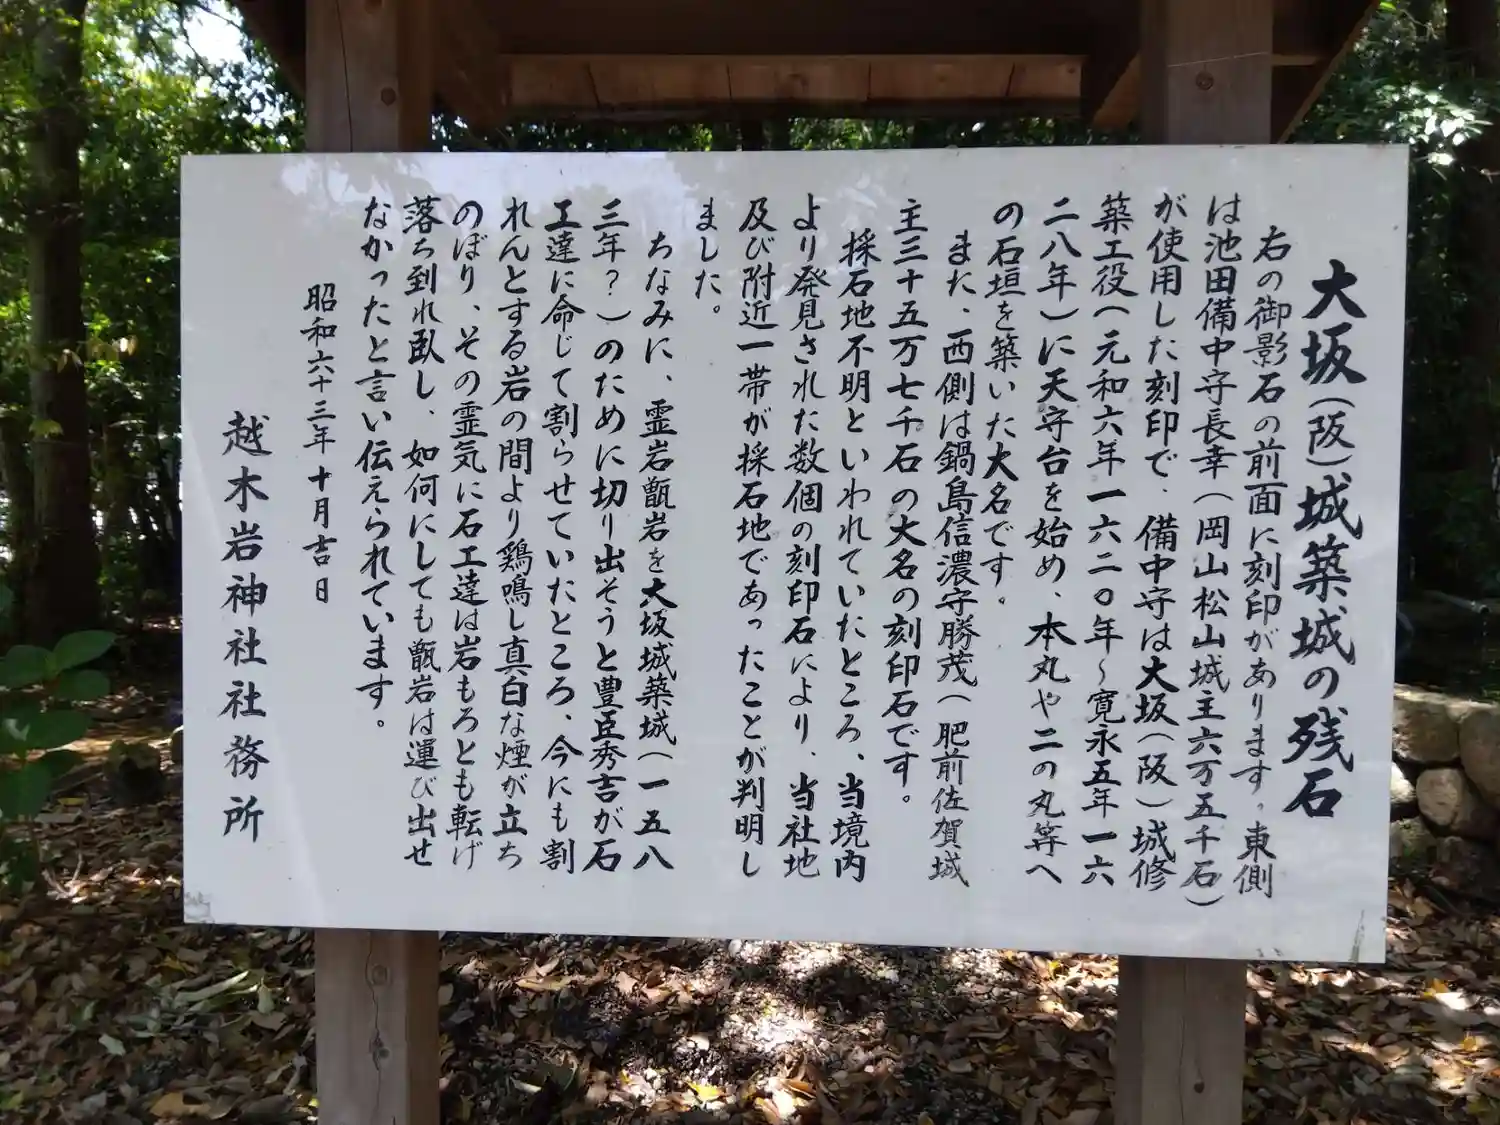 大坂（阪）城築城の残石
右の御影石の前面に刻印があります。東側
は池田備中守長幸（岡山松山城主六万五千石）
が使用した刻印で、備中守は大坂（阪）城修
築工役（元和六年一六二〇年～寛永五年一六
二八年）に天守台を始め、本丸や二の丸等へ
の石垣を築いた大名です。
また、西側は鍋島信濃守勝茂（肥前佐賀城
主三十五万七千石の大名の刻印石です。
採石地不明といわれていたところ、当境内
より発見された数個の刻印石により、当社地
及び附近一帯が採石地であったことが判明し
ました。
ちなみに、霊岩甑岩を大坂城築城（一五八
三年？）のために切り出そうと豊臣秀吉が石
工達に命じて割らせていたところ、今にも割
れんとする岩の間より鶏鳴し真白な煙が立ち
のぼり、その霊気に石工達は岩もろとも転げ
落ち到れ臥し、如何にしても甑岩は運び出せ
なかったと言い伝えられています。
昭和六十三年十月吉日
越木岩神社社務所